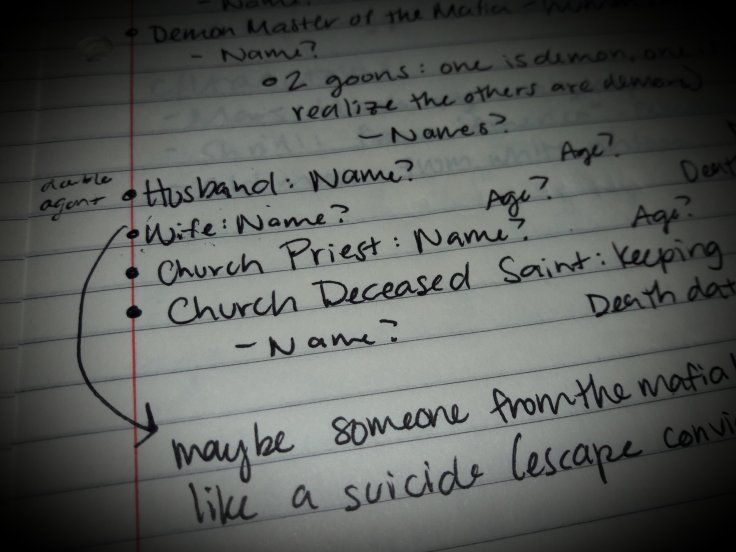 - Name?
• Demon Master of the Mafia -
- Name?
• 2 goons: one is demon, one is
realize the others are demon)
- Names?
double
agent
• Husband: Name? Age?
• Wife: Name? Age? Death
• Church Priest: Name? Age?
• Church Deceased Saint: keeping
Death dat
- Name?
maybe someone from the mafia
like a suicide (escape convi